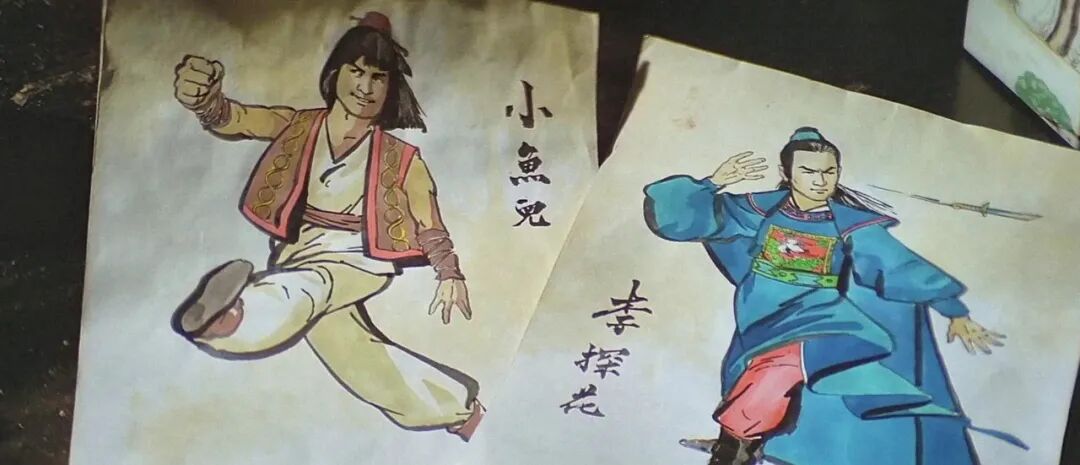 小魚兒
李探花